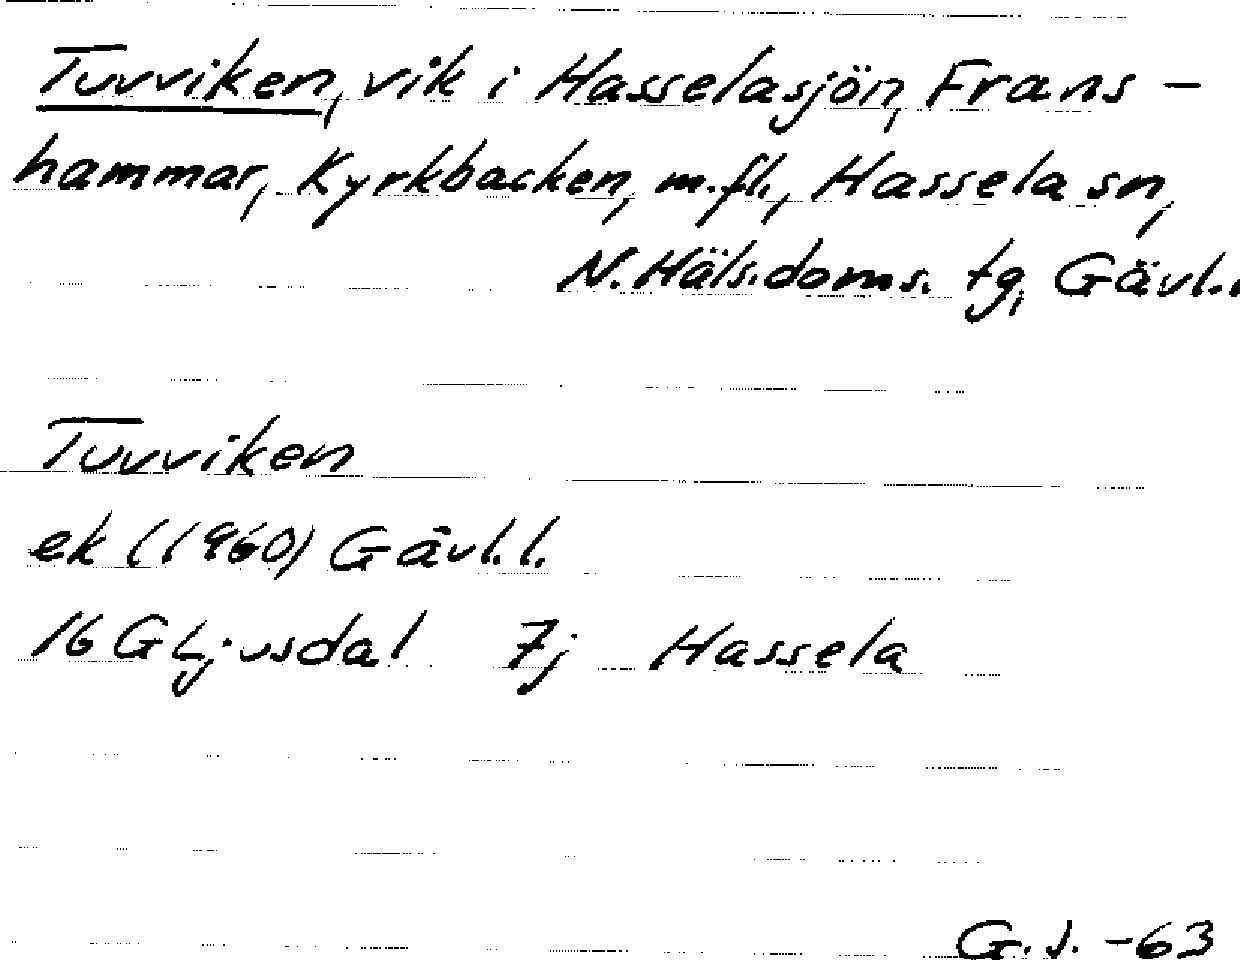 Tuvviken, vik i Hasselasjön, Frans-
hammar, Kyrkbacken, m.fl., Hassela sn,
N. Häls. doms. tg, Gävl.l.
Tuvviken
ek (1960) Gävl.l.
16 G Ljusdal 7j Hassela
G.J. -63